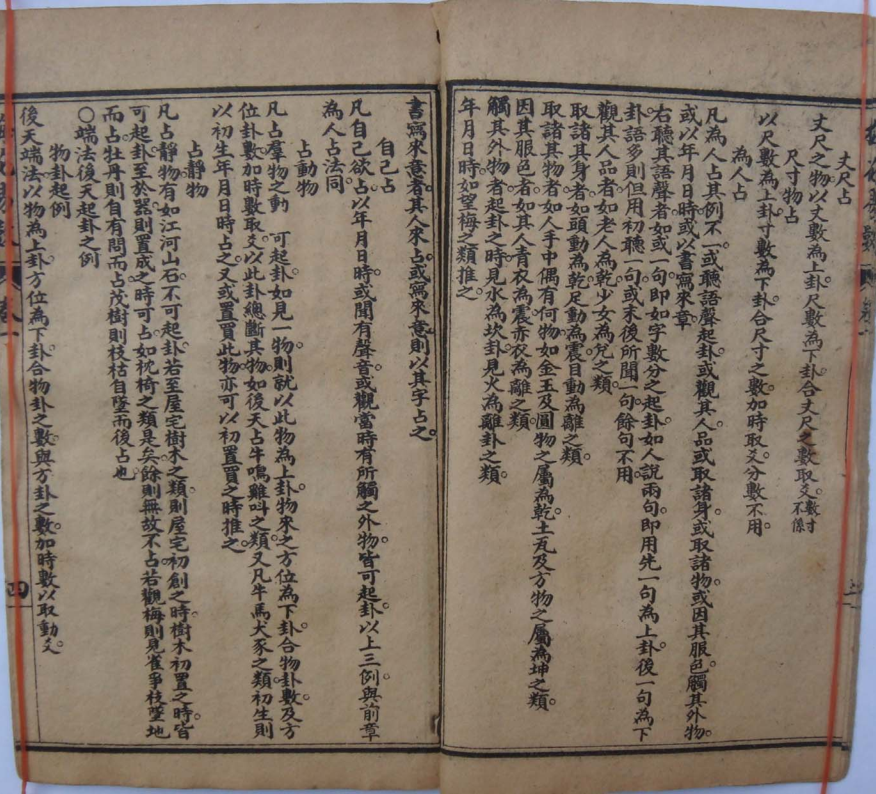 丈尺占
丈尺之物以丈數為上卦尺數為下卦合丈尺之數取爻。數寸不係
尺寸物占
以尺數為上卦寸數為下卦合尺寸之數加時取爻分數不用。
為人占
凡為人占其例不一或聽語聲起卦或觀其人品或取諸身或取諸物或因其服色觸其外物。
或以年月日時或以書寫來章
右聽其語聲者如或一句即如字數分之起卦如人說兩句即用先一句為上卦後一句為下
卦語多則但用初聽一句或末後所聞一句餘句不用。
觀其人品者如老人為乾少女為兌之類
取諸其身者如頭動為乾足動為震目動為離之類。
取諸其物者如人手中偶有何物如金玉及圓物之屬為乾土瓦及方物之屬為坤之類。
因其服色者如其人青衣為震赤衣為離之類
觸其外物者起卦之時見水為坎卦見火為離卦之類。
年月日時如望梅之類推之。
書寫來意者其人來占或寫來意則以其字占之。
自己占
凡自己欲占以年月日時或聞有聲音或觀當時有所觸之外物皆可起卦以上三例。與前章
為人占法同。
占動物
凡占羣物之動 可起卦如見一物則就以此物為上卦物來之方位為下卦合物卦數及方
位卦數加時數取爻以此卦總斷其物如後天占牛鳴雞叫之類又凡牛馬犬豕之類初生則
以初生年月日時占之又或置買此物亦可以初置買之時推之。
占靜物
凡占靜物有如江河山石不可起卦若至屋宅樹木之類則屋宅初創之時樹木初置之時。皆
可起卦至於器則置成之時可占如枕椅之類是矣餘則無故不占若觀梅則見雀爭枝墜地
而占牡丹則自有問而占茂樹則枝枯自墜而後占也。
○端法後天起卦之例
物卦起例
後天端法以物為上卦方位為下卦合物卦之數與方卦之數加時數以取動爻。
四